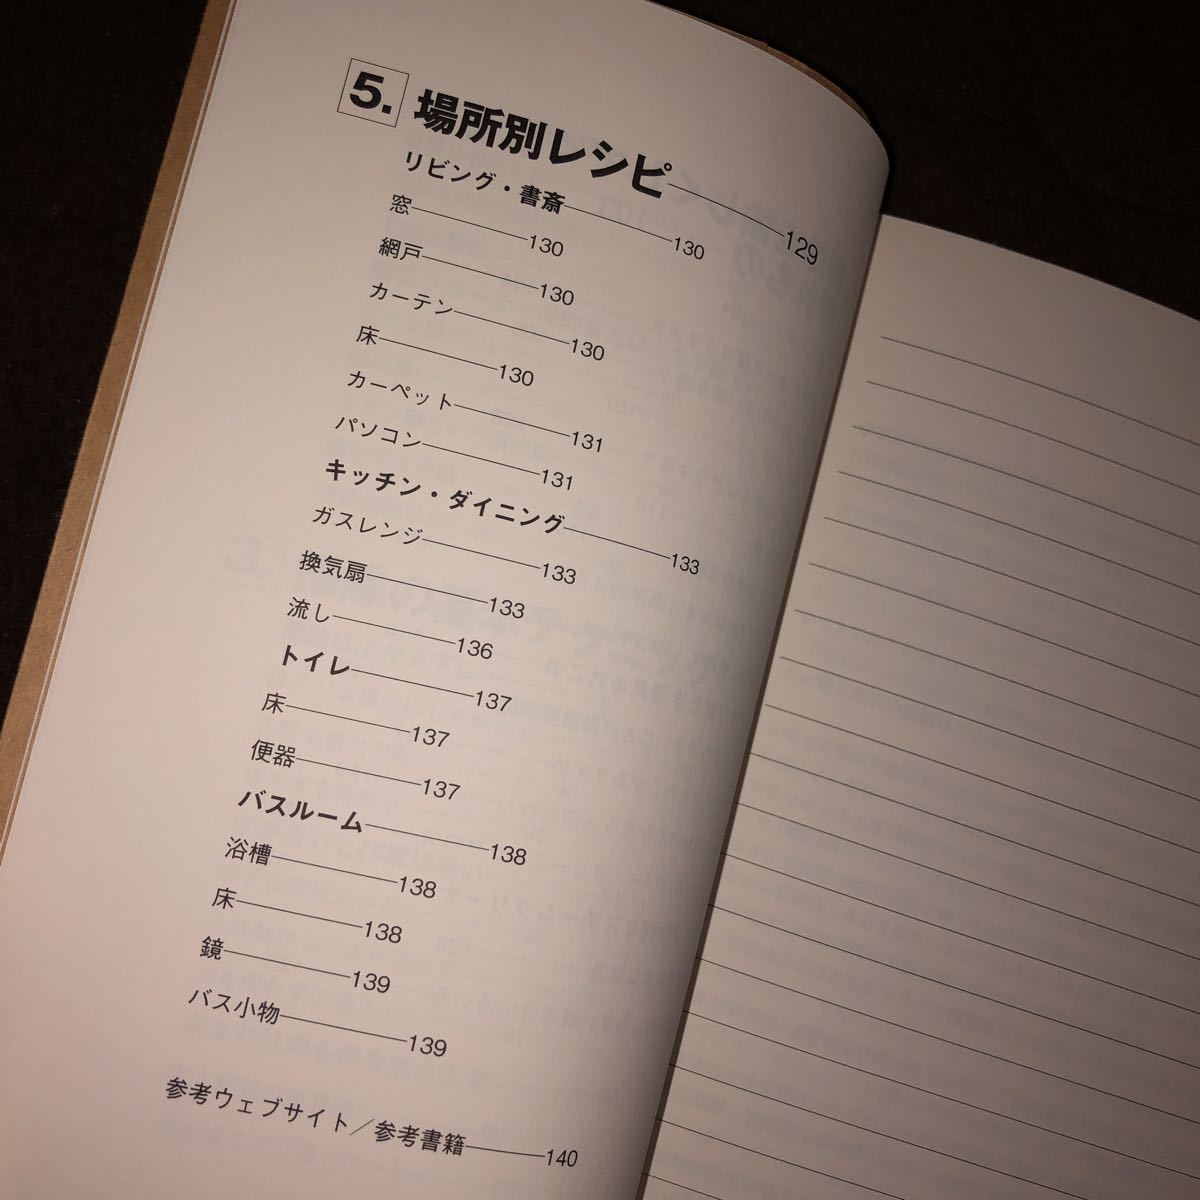 5. 場所別レシピ 129
リビング・書斎 130
窓 130
網戸 130
カーテン 130
床 130
カーペット 131
パソコン 131
キッチン・ダイニング 133
ガスレンジ 133
換気扇 133
流し 136
トイレ 137
床 137
便器 137
バスルーム 138
浴槽 138
床 138
鏡 139
バス小物 139
参考ウェブサイト／参考書籍 140